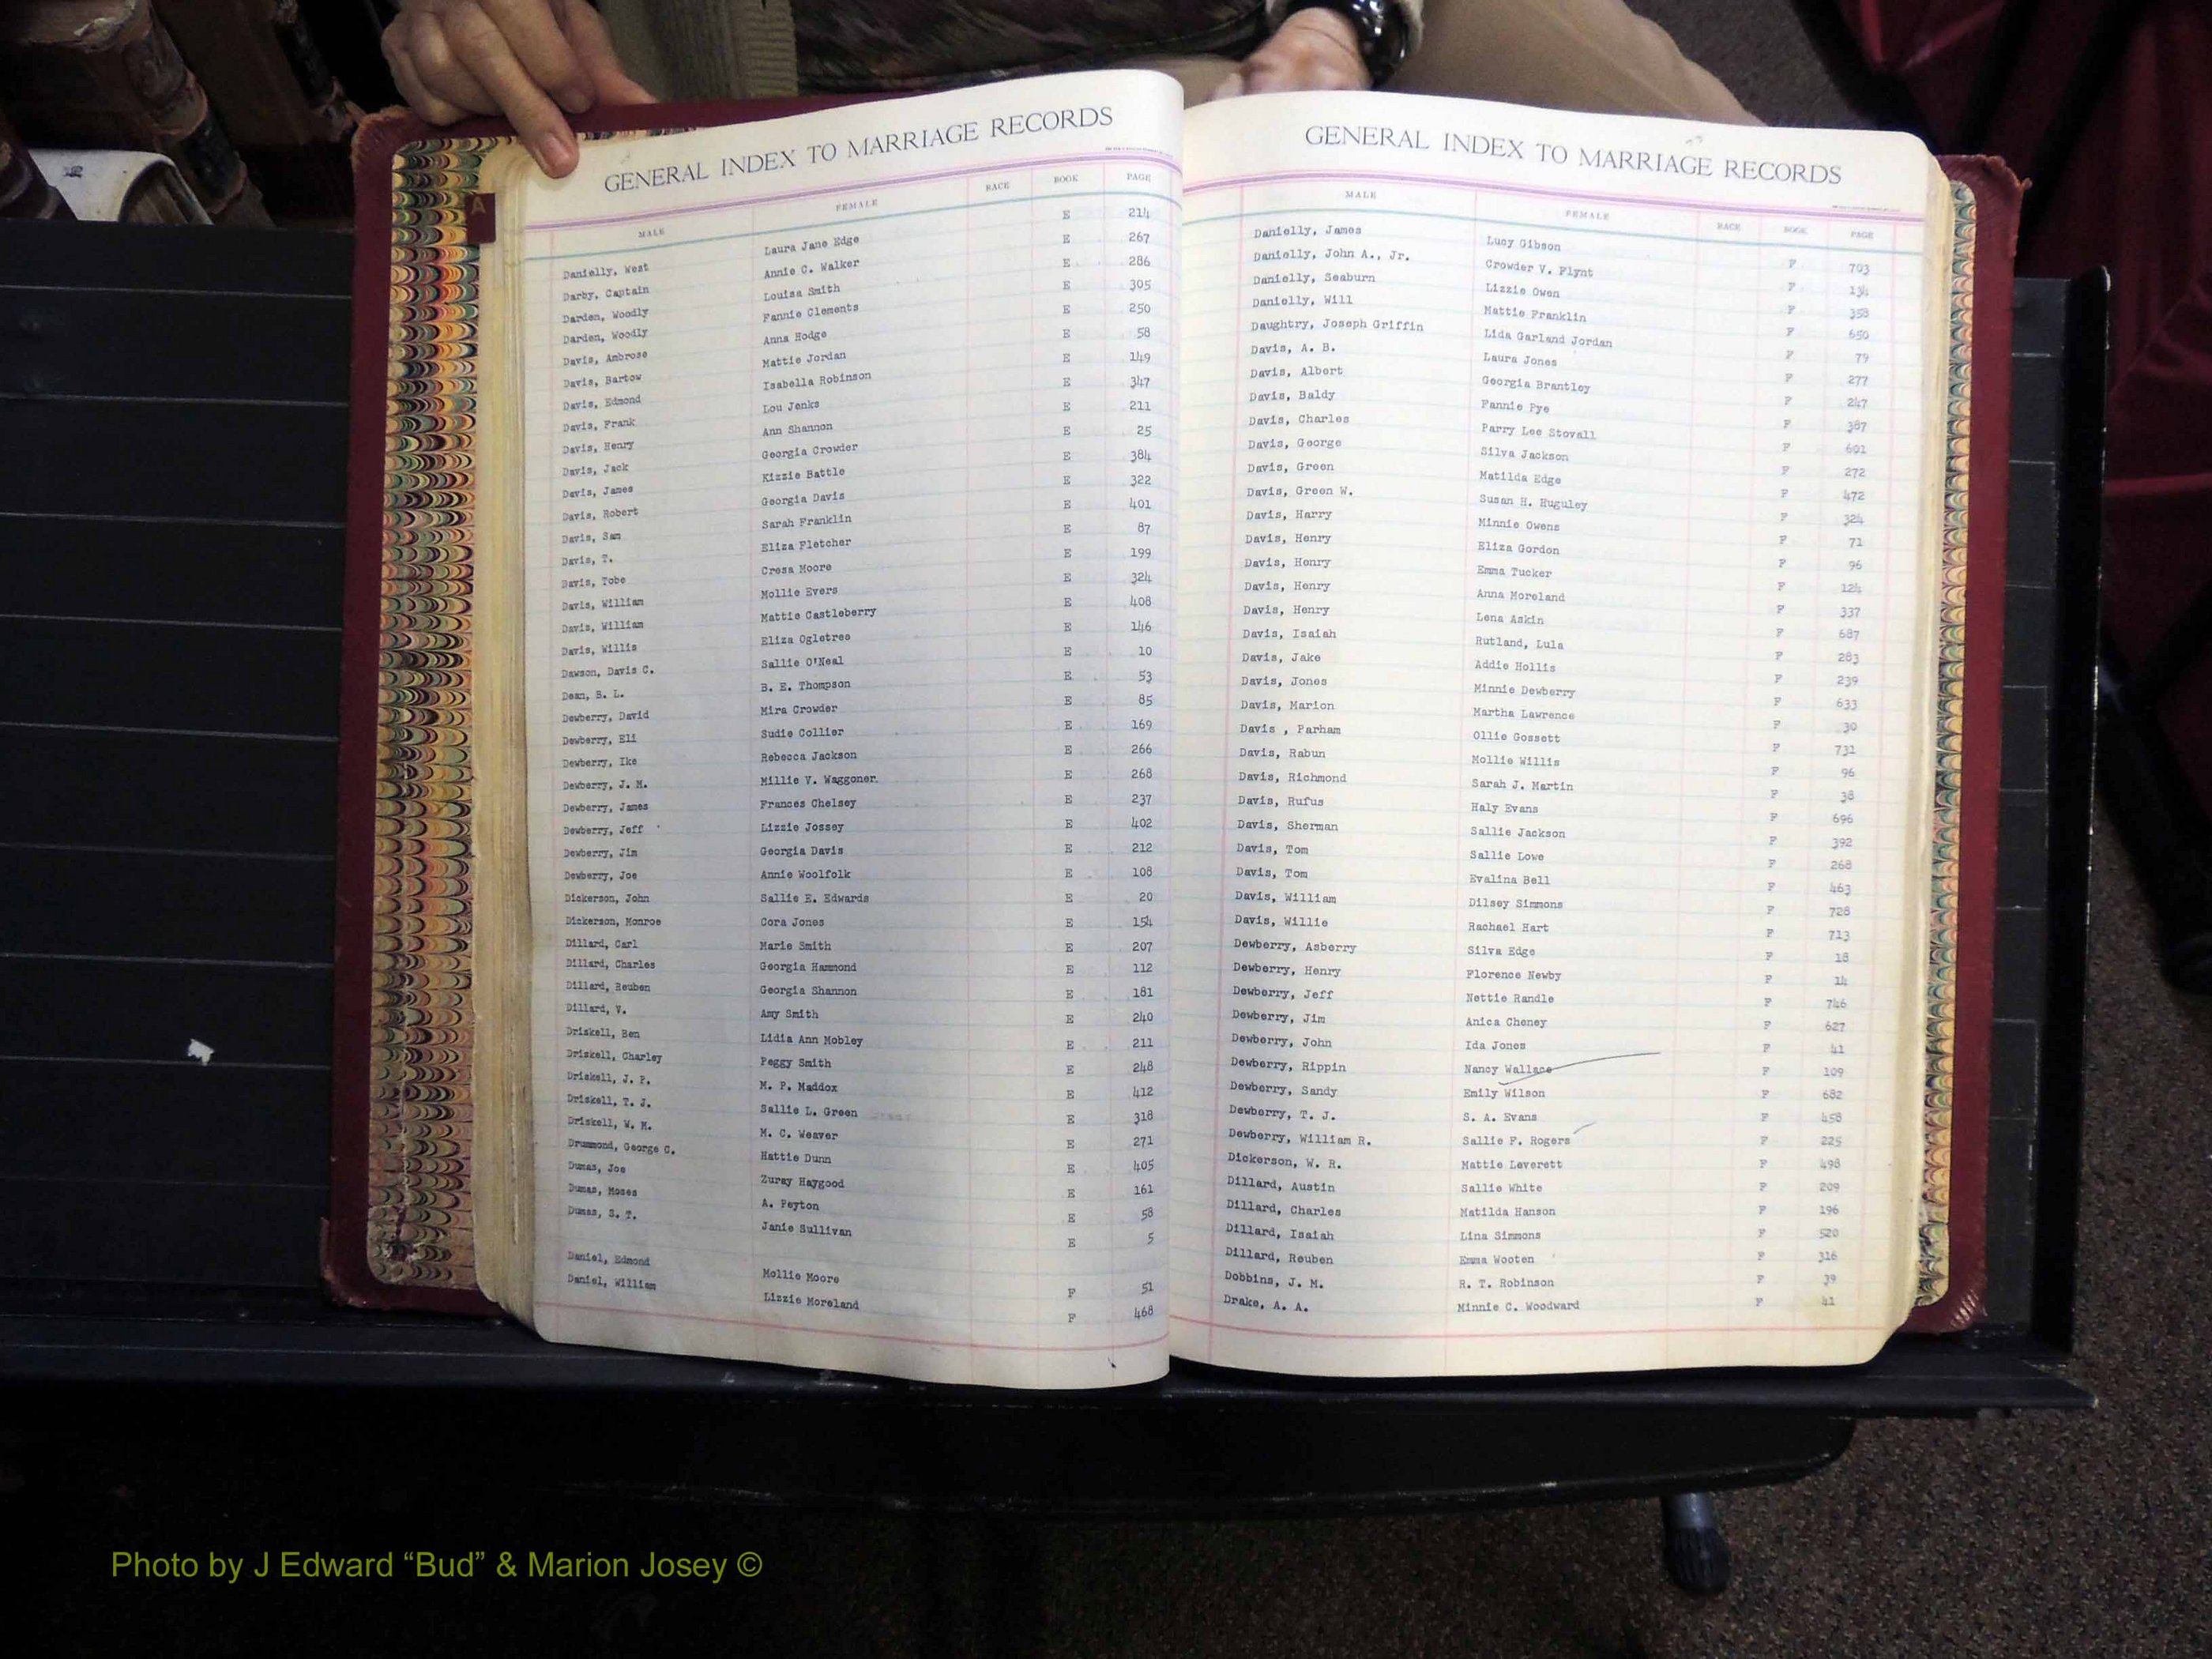 GENERAL INDEX TO MARRIAGE RECORDS
MALE FEMALE RACE BOOK PAGE
Danielly, West Laura Jane Edge E 214
Darby, Captain Annie C. Walker E 267
Darden, Woodly Louisa Smith E 286
Darden, Woodly Fannie Clements E 305
Davis, Ambrose Anna Hodge E 250
Davis, Bartow Mattie Jordan E 58
Davis, Edmond Isabella Robinson E 149
Davis, Frank Lou Jenks E 347
Davis, Henry Ann Shannon E 211
Davis, Jack Georgia Crowder E 25
Davis, James Kizzie Battle E 384
Davis, Robert Georgia Davis E 322
Davis, Sam Sarah Franklin E 401
Davis, T. Eliza Fletcher E 87
Davis, Tobe Cresa Moore E 199
Davis, William Mollie Evers E 324
Davis, William Mattie Castleberry E 408
Davis, Willis Eliza Ogletree E 146
Dawson, Davis C. Sallie O'Neal E 10
Dean, B. L. B. E. Thompson E 53
Dewberry, David Mira Crowder E 85
Dewberry, Eli Sudie Collier E 169
Dewberry, Ike Rebecca Jackson E 266
Dewberry, J. M. Millie V. Waggoner E 268
Dewberry, James Frances Chelsey E 237
Dewberry, Jeff Lizzie Jossey E 402
Dewberry, Jim Georgia Davis E 212
Dewberry, Joe Annie Woolfolk E 108
Dickerson, John Sallie E. Edwards E 20
Dickerson, Monroe Cora Jones E 154
Dillard, Carl Marie Smith E 207
Dillard, Charles Georgia Hammond E 112
Dillard, Reuben Georgia Shannon E 181
Dillard, V. Amy Smith E 240
Driskell, Ben Lidia Ann Mobley E 211
Driskell, Charley Peggy Smith E 248
Driskell, J. P. M. P. Maddox E 412
Driskell, T. J. Sallie L. Green E 318
Driskell, W. M. M. C. Weaver E 271
Drummond, George C. Hattie Dunn E 405
Dumas, Joe Zuray Haygood E 161
Dumas, Moses A. Peyton E 58
Dumas, S. T. Janie Sullivan E 5
Daniel, Edmond Mollie Moore F 51
Daniel, William Lizzie Moreland F 468
GENERAL INDEX TO MARRIAGE RECORDS
MALE FEMALE RACE BOOK PAGE
Danielly, James Lucy Gibson F 703
Danielly, John A., Jr. Crowder V. Flynt F 134
Danielly, Seaburn Lizzie Owen F 358
Danielly, Will Mattie Franklin F 650
Daughtry, Joseph Griffin Lida Garland Jordan F 79
Davis, A. B. Laura Jones F 277
Davis, Albert Georgia Brantley F 247
Davis, Baldy Fannie Pye F 387
Davis, Charles Parry Lee Stovall F 601
Davis, George Silva Jackson F 272
Davis, Green Matilda Edge F 472
Davis, Green W. Susan H. Huguley F 324
Davis, Harry Minnie Owens F 71
Davis, Henry Eliza Gordon F 96
Davis, Henry Emma Tucker F 124
Davis, Henry Anna Moreland F 337
Davis, Henry Lena Askin F 687
Davis, Isaiah Rutland, Lula F 283
Davis, Jake Addie Hollis F 239
Davis, Jones Minnie Dewberry F 633
Davis, Marion Martha Lawrence F 30
Davis , Parham Ollie Gossett F 731
Davis, Rabun Mollie Willis F 96
Davis, Richmond Sarah J. Martin F 38
Davis, Rufus Haly Evans F 696
Davis, Sherman Sallie Jackson F 392
Davis, Tom Sallie Lowe F 268
Davis, Tom Evalina Bell F 463
Davis, William Dilsey Simmons F 728
Davis, Willie Rachael Hart F 713
Dewberry, Asberry Silva Edge F 18
Dewberry, Henry Florence Newby F 14
Dewberry, Jeff Nettie Randle F 746
Dewberry, Jim Anica Cheney F 627
Dewberry, John Ida Jones F 41
Dewberry, Rippin Nancy Wallace F 109
Dewberry, Sandy Emily Wilson F 682
Dewberry, T. J. S. A. Evans F 458
Dewberry, William R. Sallie F. Rogers F 225
Dickerson, W. R. Mattie Leverett F 498
Dillard, Austin Sallie White F 209
Dillard, Charles Matilda Hanson F 196
Dillard, Isaiah Lina Simmons F 520
Dillard, Reuben Emma Wooten F 316
Dobbins, J. M. R. T. Robinson F 39
Drake, A. A. Minnie C. Woodward F 41
A
Photo by J Edward “Bud” & Marion Josey ©